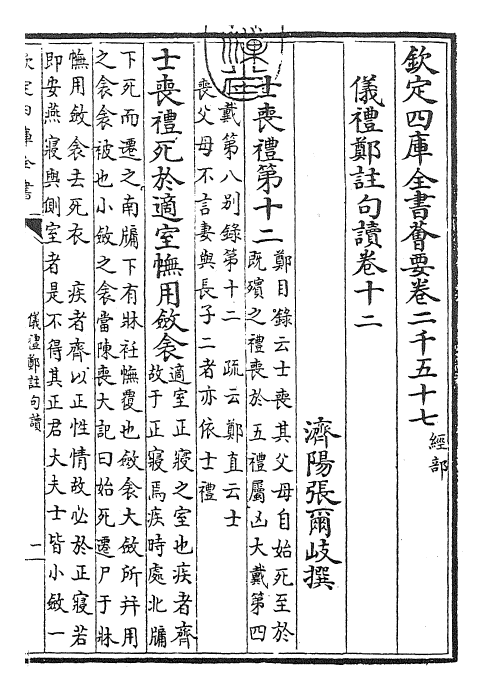 欽定四庫全書薈要卷二千五十七 經部
儀禮鄭註句讀卷十二
濟陽張爾岐撰
士喪禮第十二
鄭目錄云士喪其父母自始死至於
既殯之禮喪於五禮屬凶大戴第四
戴第八別錄第十二 疏云鄭直云士
喪父母不言妻與長子二者亦依士禮
士喪禮死於適室幠用斂衾
適室正寢之室也疾者齊
故于正寢焉疾時處北牖
下死而遷之南牖下有牀衽幠覆也斂衾大斂所并用
之衾衾被也小斂之衾當陳喪大記曰始死遷尸于牀
幠用斂衾去死衣 疾者齊以正性情故必於正寢若
即安燕寢與側室者是不得其正君大夫士皆小斂一
欽定四庫全書
儀禮鄭註句讀
一